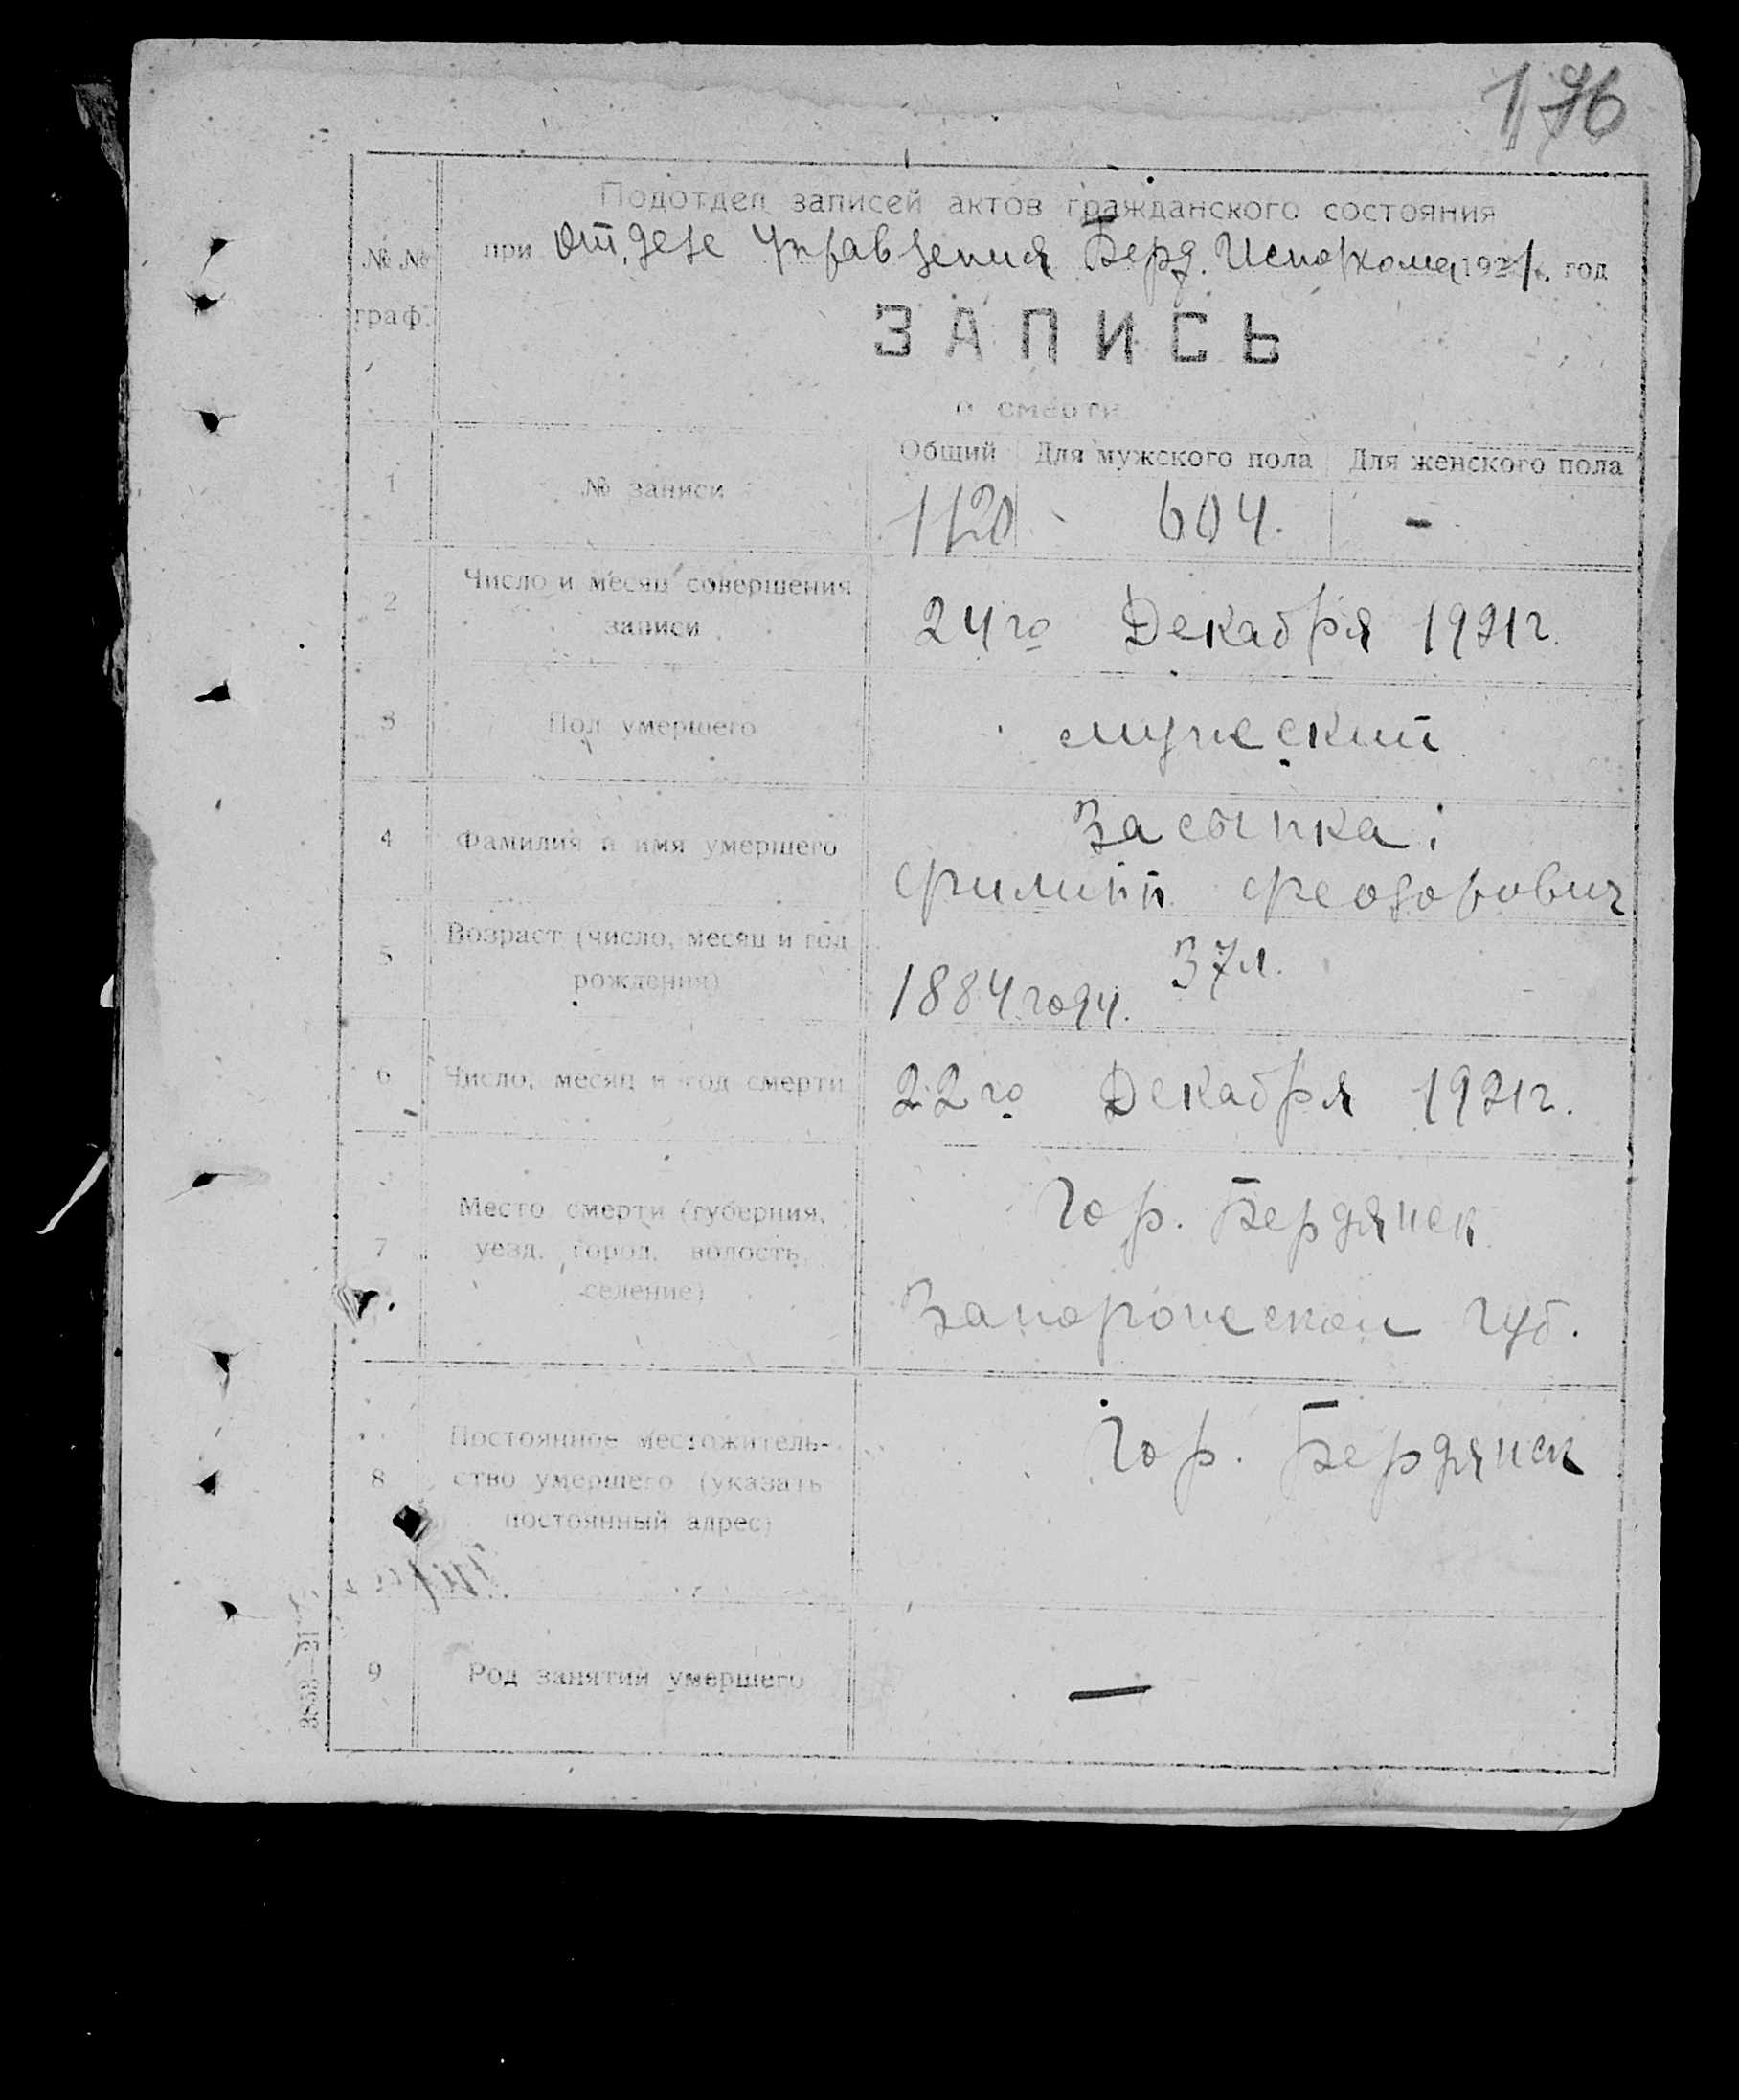 176
Подотдел записей актов гражданского состояния
№ №
граф.
при Отделе Управления Берд. Исполкома 1921. год
ЗАПИСЬ
о смерти
Общий Для мужского пола Для женского пола
1 № записи 1120 604. -
2 Число и месяц совершения
записи
24го Декабря 1921г.
3 Пол умершего мужеский
4 Фамилия и имя умершего Засыпка
Филипп Феодорович
5 Возраст (число, месяц и год
рождения)
37л.
1884 году.
6 Число, месяц и год смерти 22го Декабря 1921г.
7 Место смерти (губерния,
уезд, город, волость,
селение)
Гор. Бердянск
Запорожской губ.
8 Постоянное местожитель-
ство умершего (указать
постоянный адрес)
Гор. Бердянск
9 Род занятий умершего —
3853—21